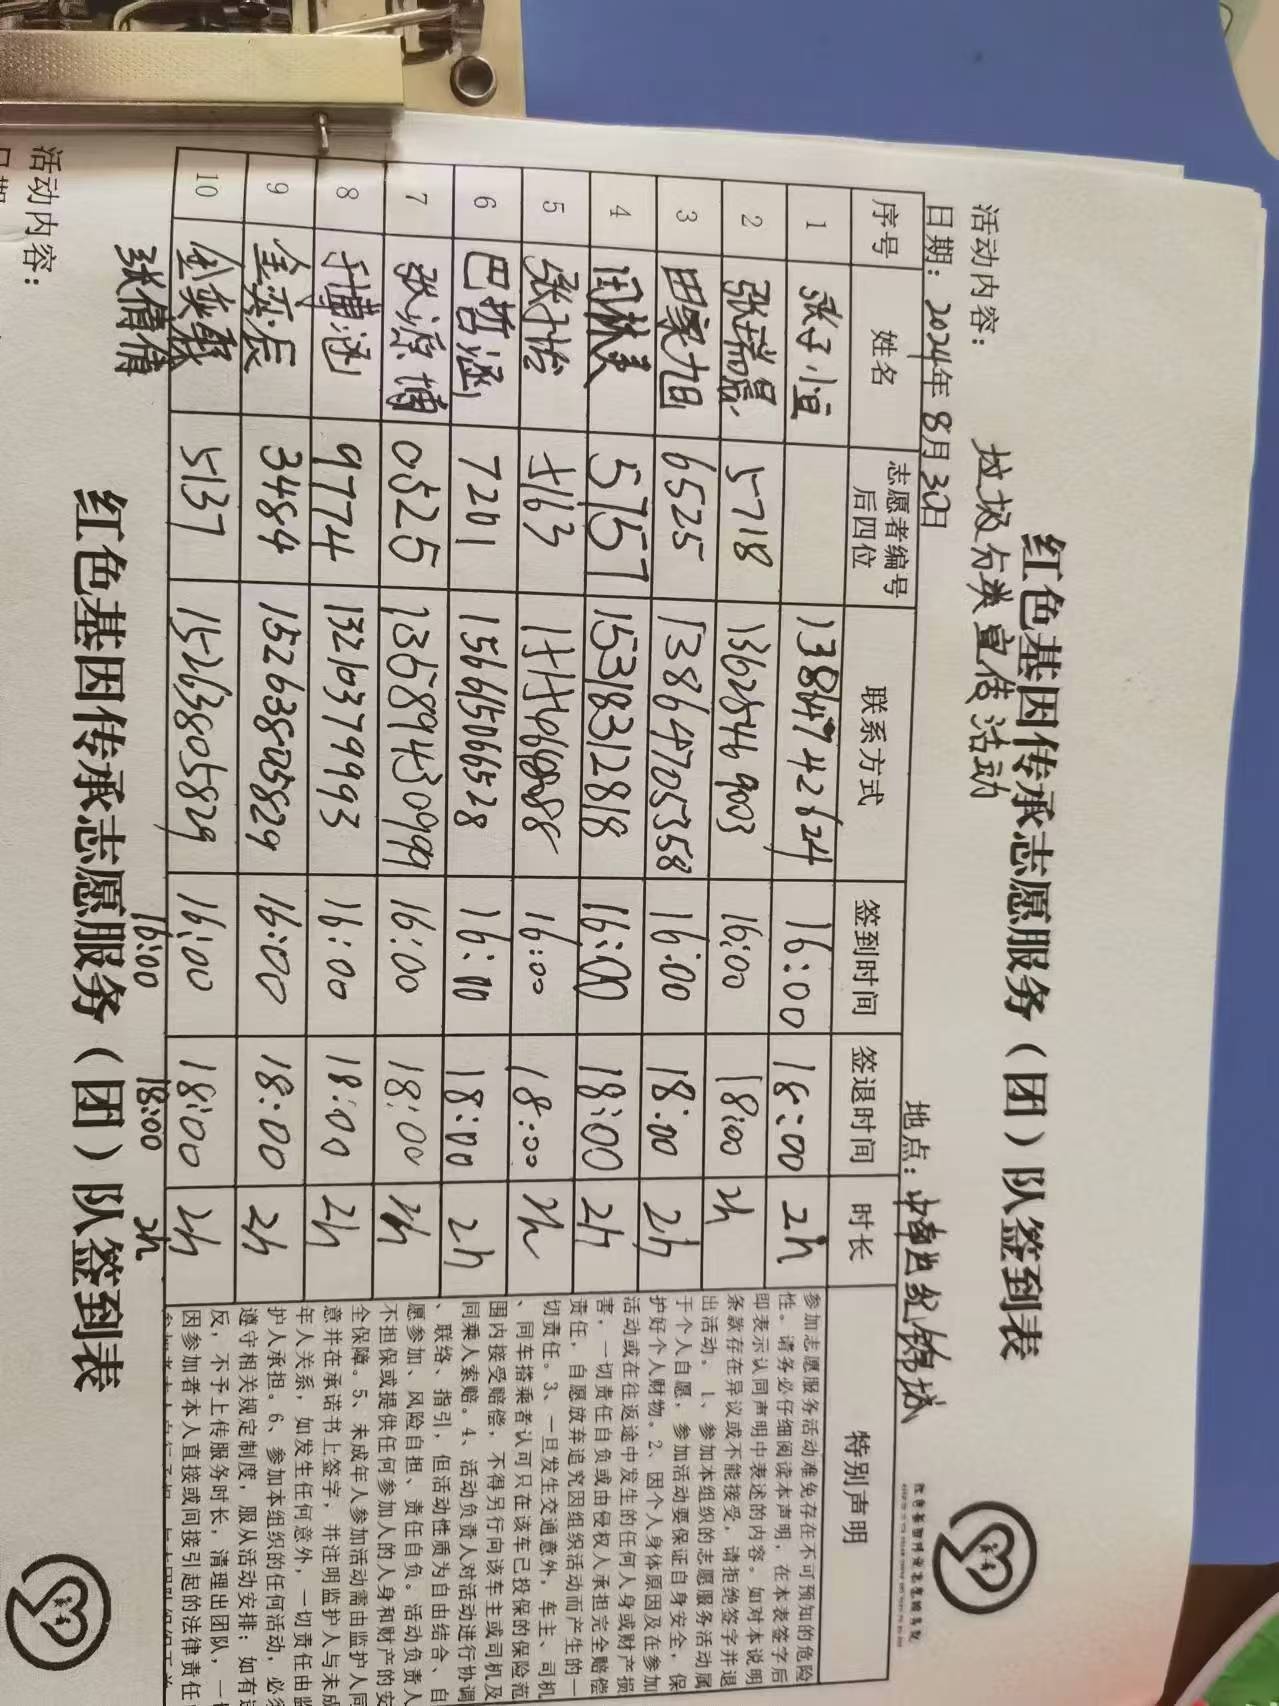 红色基因传承志愿服务（团）队签到表
活动内容： 垃圾分类宣传活动
日期：2024年8月30日 地点：中南世纪锦城
序号 姓名 志愿者编号后四位 联系方式 签到时间 签退时间 时长 特别声明
1 张子恒 13864742624 16:00 18:00 2h
2 张瑞晨 5718 13625469003 16:00 18:00 2h
3 田家旭 6525 13864705358 16:00 18:00 2h
4 5757 15318312818 16:00 18:00 2h
5 张抬 5163 16:00 18:00 2h
6 巴哲涵 7201 156615066528 16:00 18:00 2h
7 张源博 0525 13589430999 16:00 18:00 2h
8 于博涵 9774 13210379993 16:00 18:00 2h
9 金奕辰 3484 15263805829 16:00 18:00 2h
10 金奕 5137 15263805829 16:00 18:00 2h
张倩倩 16:00 18:00 2h
参加志愿服务活动难免存在不可预知的危险
性。请务必仔细阅读本声明，在本表签字后
即表示认同声明中表述的内容。如对本说明
条款存在异议或不能接受，请拒绝签字并退
出活动。1、参加本组织的志愿服务活动属
于个人自愿，参加活动要保证自身安全，保
护好个人财物。2、因个人身体原因及在参加
活动或在往返途中发生的任何人身或财产损
害，一切责任自负或由侵权人承担完全赔偿
责任，自愿放弃追究因组织活动而产生的一
切责任。3、一旦发生交通意外，车主、司机
、同车搭乘者认可只在该车已投保的保险范
围内接受赔偿，不得另行向该车主或司机及
同乘人索赔。4、活动负责人对活动进行协调
、联络、指引，但活动性质为自由结合、自
愿参加、风险自担、责任自负。活动负责人
不担保或提供任何参加人的人身和财产的安
全保障。5、未成年人参加活动需由监护人同
意并在承诺书上签字，并注明监护人与未成
年人关系，如发生任何意外，一切责任由监
护人承担。6、参加本组织的任何活动，必须
遵守相关规定制度，服从活动安排；如有违
反，不予上传服务时长，清理出团队，一切
因参加者本人直接或间接引起的法律责任
红色基因传承志愿服务（团）队签到表
活动内容：